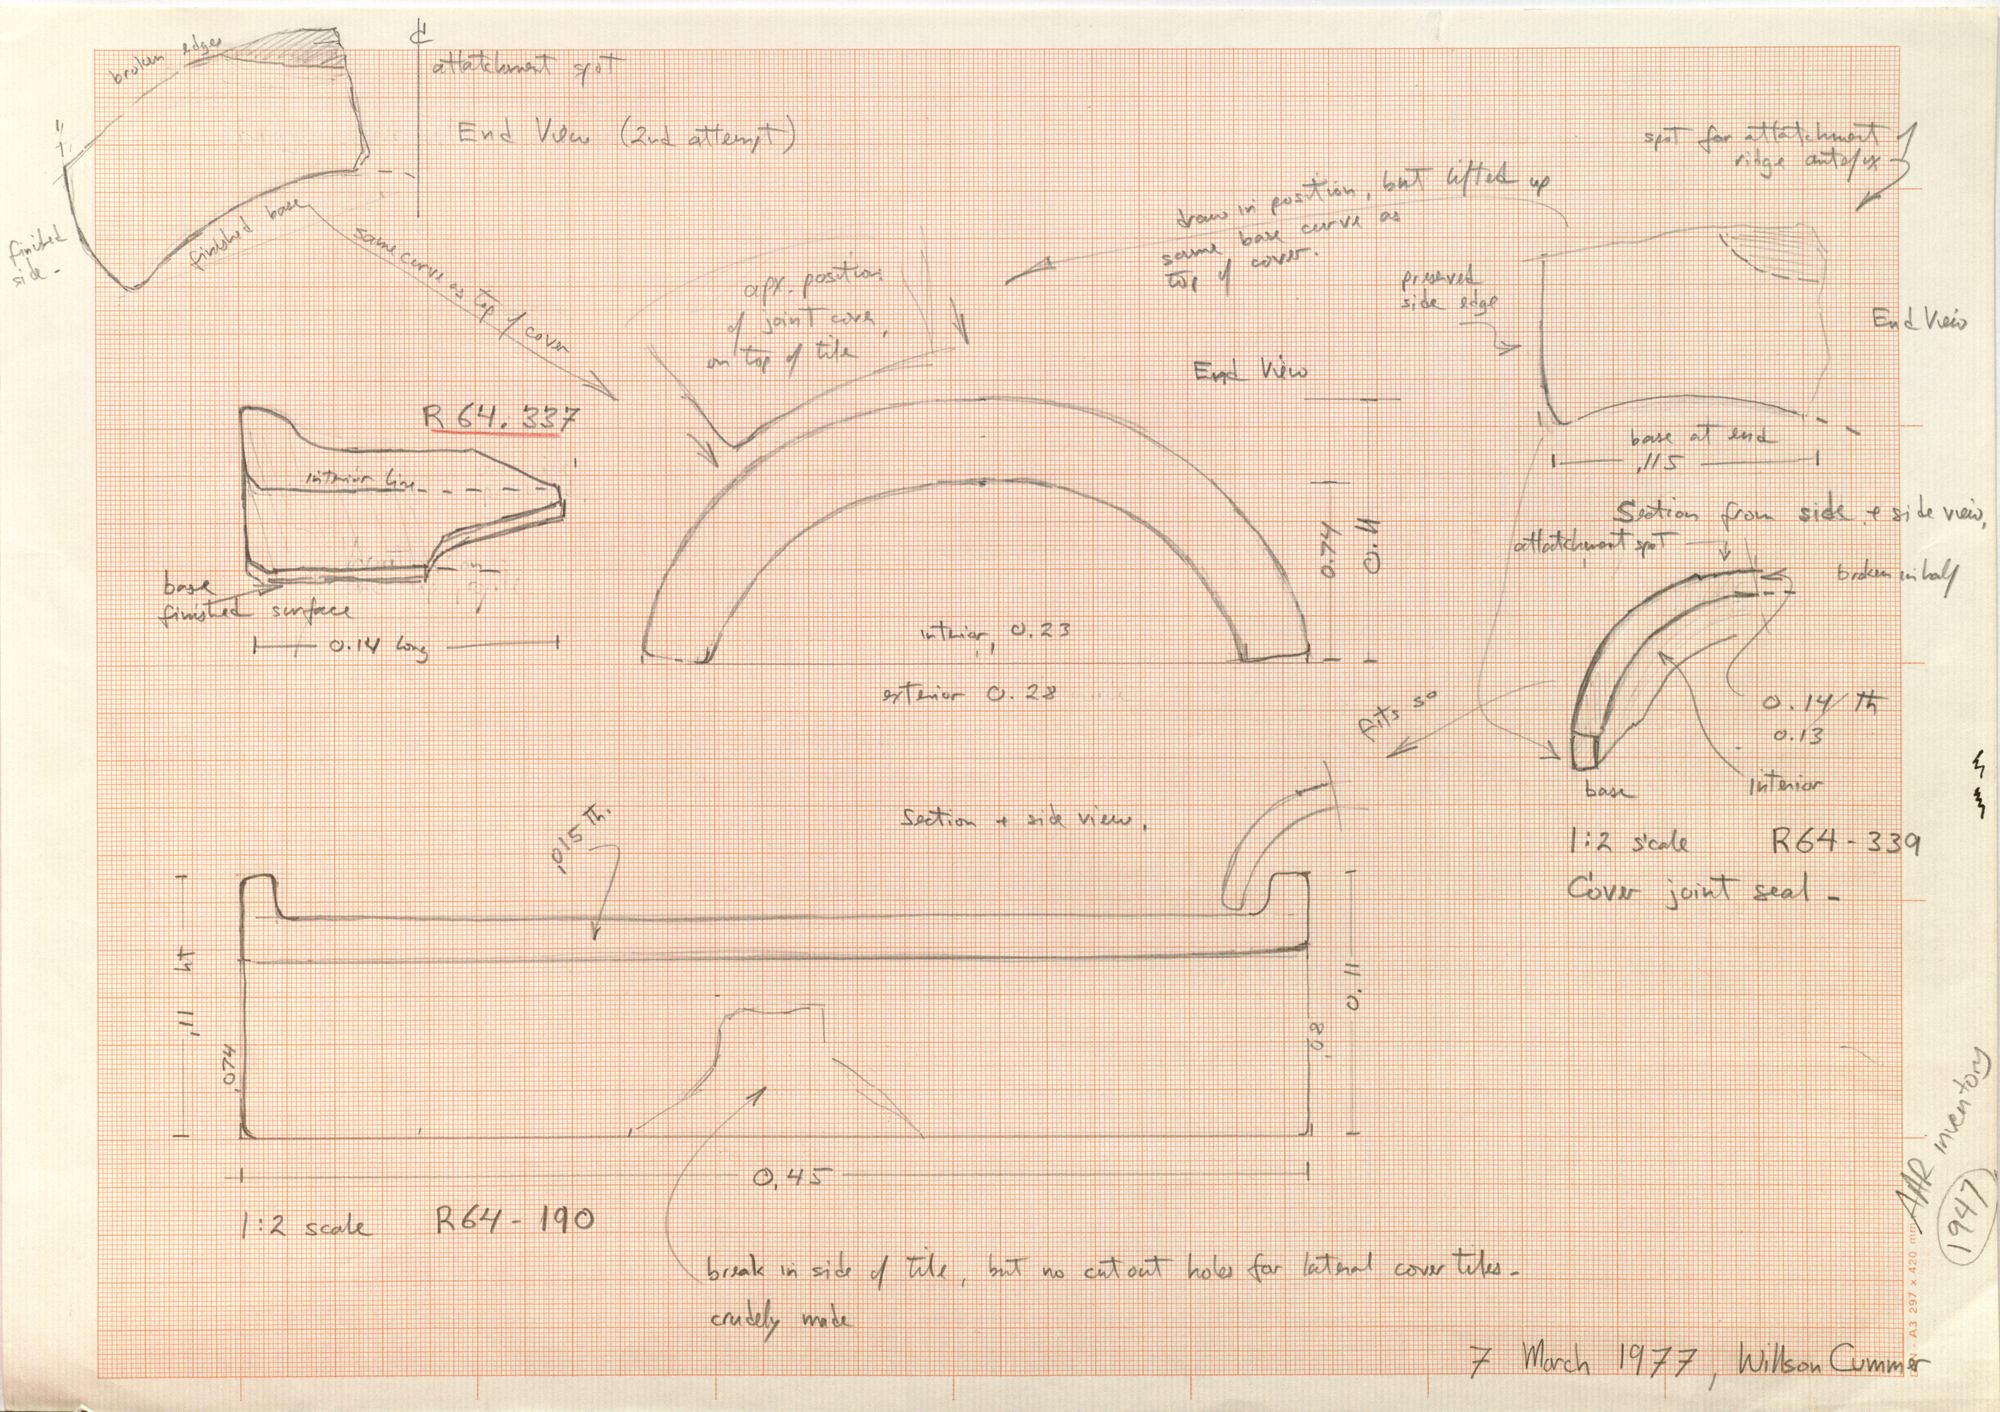 broken edges
℄
attatchment spot
End View (2nd attempt)
finished
side -
finished base
same curve as top of cover
apr. position
of joint cover,
on top of tile
draw in position, but lifted up
same base curve as
top of cover.
spot for attatchment
ridge antefix
preserved
side edge
End View
End View
base at end
.115
R 64.337
interior line
base
finished surface
0.14 long
0.74
0.11
interior, 0.23
exterior 0.28
Section from side + side view,
attatchment spot
broken in half
0.14 th
0.13
interior
base
fits so
1:2 scale R64-339
Cover joint seal -
.015 th.
Section + side view.
.11 ht
.074
0.11
.08
0.45
1:2 scale R64-190
break in side of tile, but no cut out holes for lateral cover tiles -
crudely made
7 March 1977, Willson Cummer
AAR inventory
1947
A3 297 x 420 mm